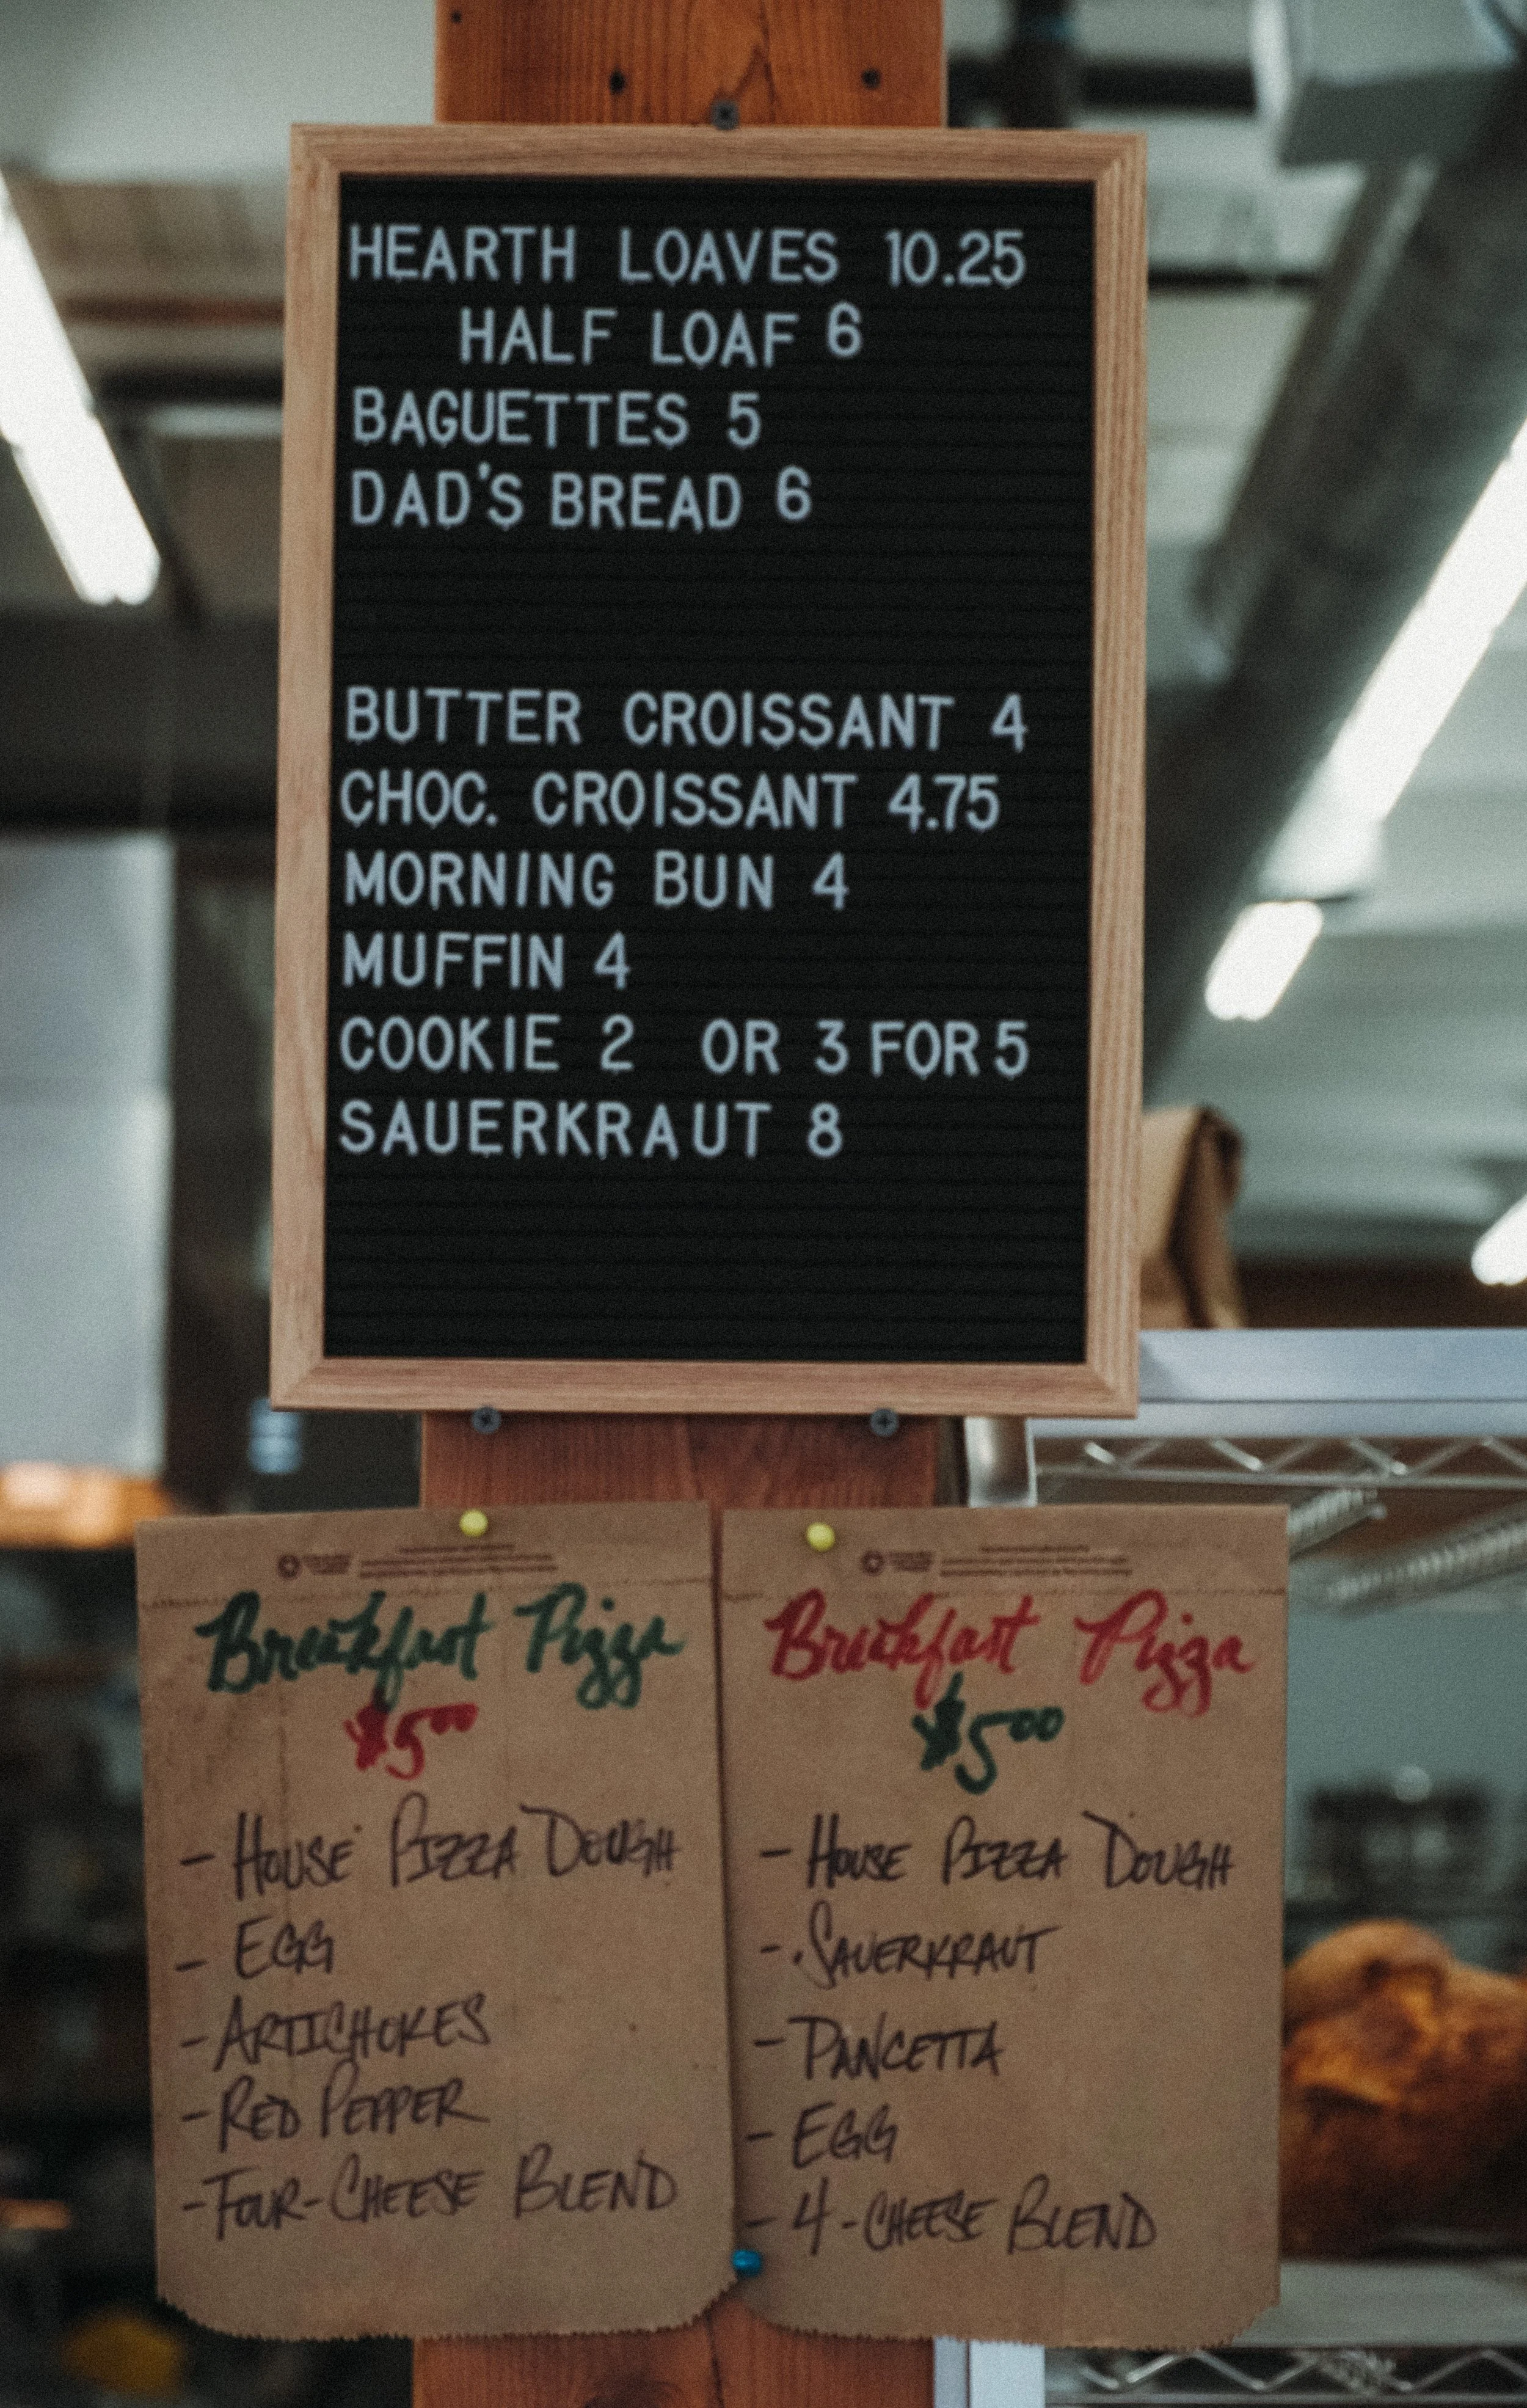 HEARTH LOAVES 10.25
HALF LOAF 6
BAGUETTES 5
DAD'S BREAD 6
BUTTER CROISSANT 4
CHOC. CROISSANT 4.75
MORNING BUN 4
MUFFIN 4
COOKIE 2 OR 3 FOR 5
SAUERKRAUT 8
Breakfast Pizza
$5.00
- HOUSE PIZZA DOUGH
- EGG
- ARTICHOKES
- RED PEPPER
- FOUR-CHEESE BLEND
Breakfast Pizza
$5.00
- HOUSE PIZZA DOUGH
- SAUERKRAUT
- PANCETTA
- EGG
- 4-CHEESE BLEND